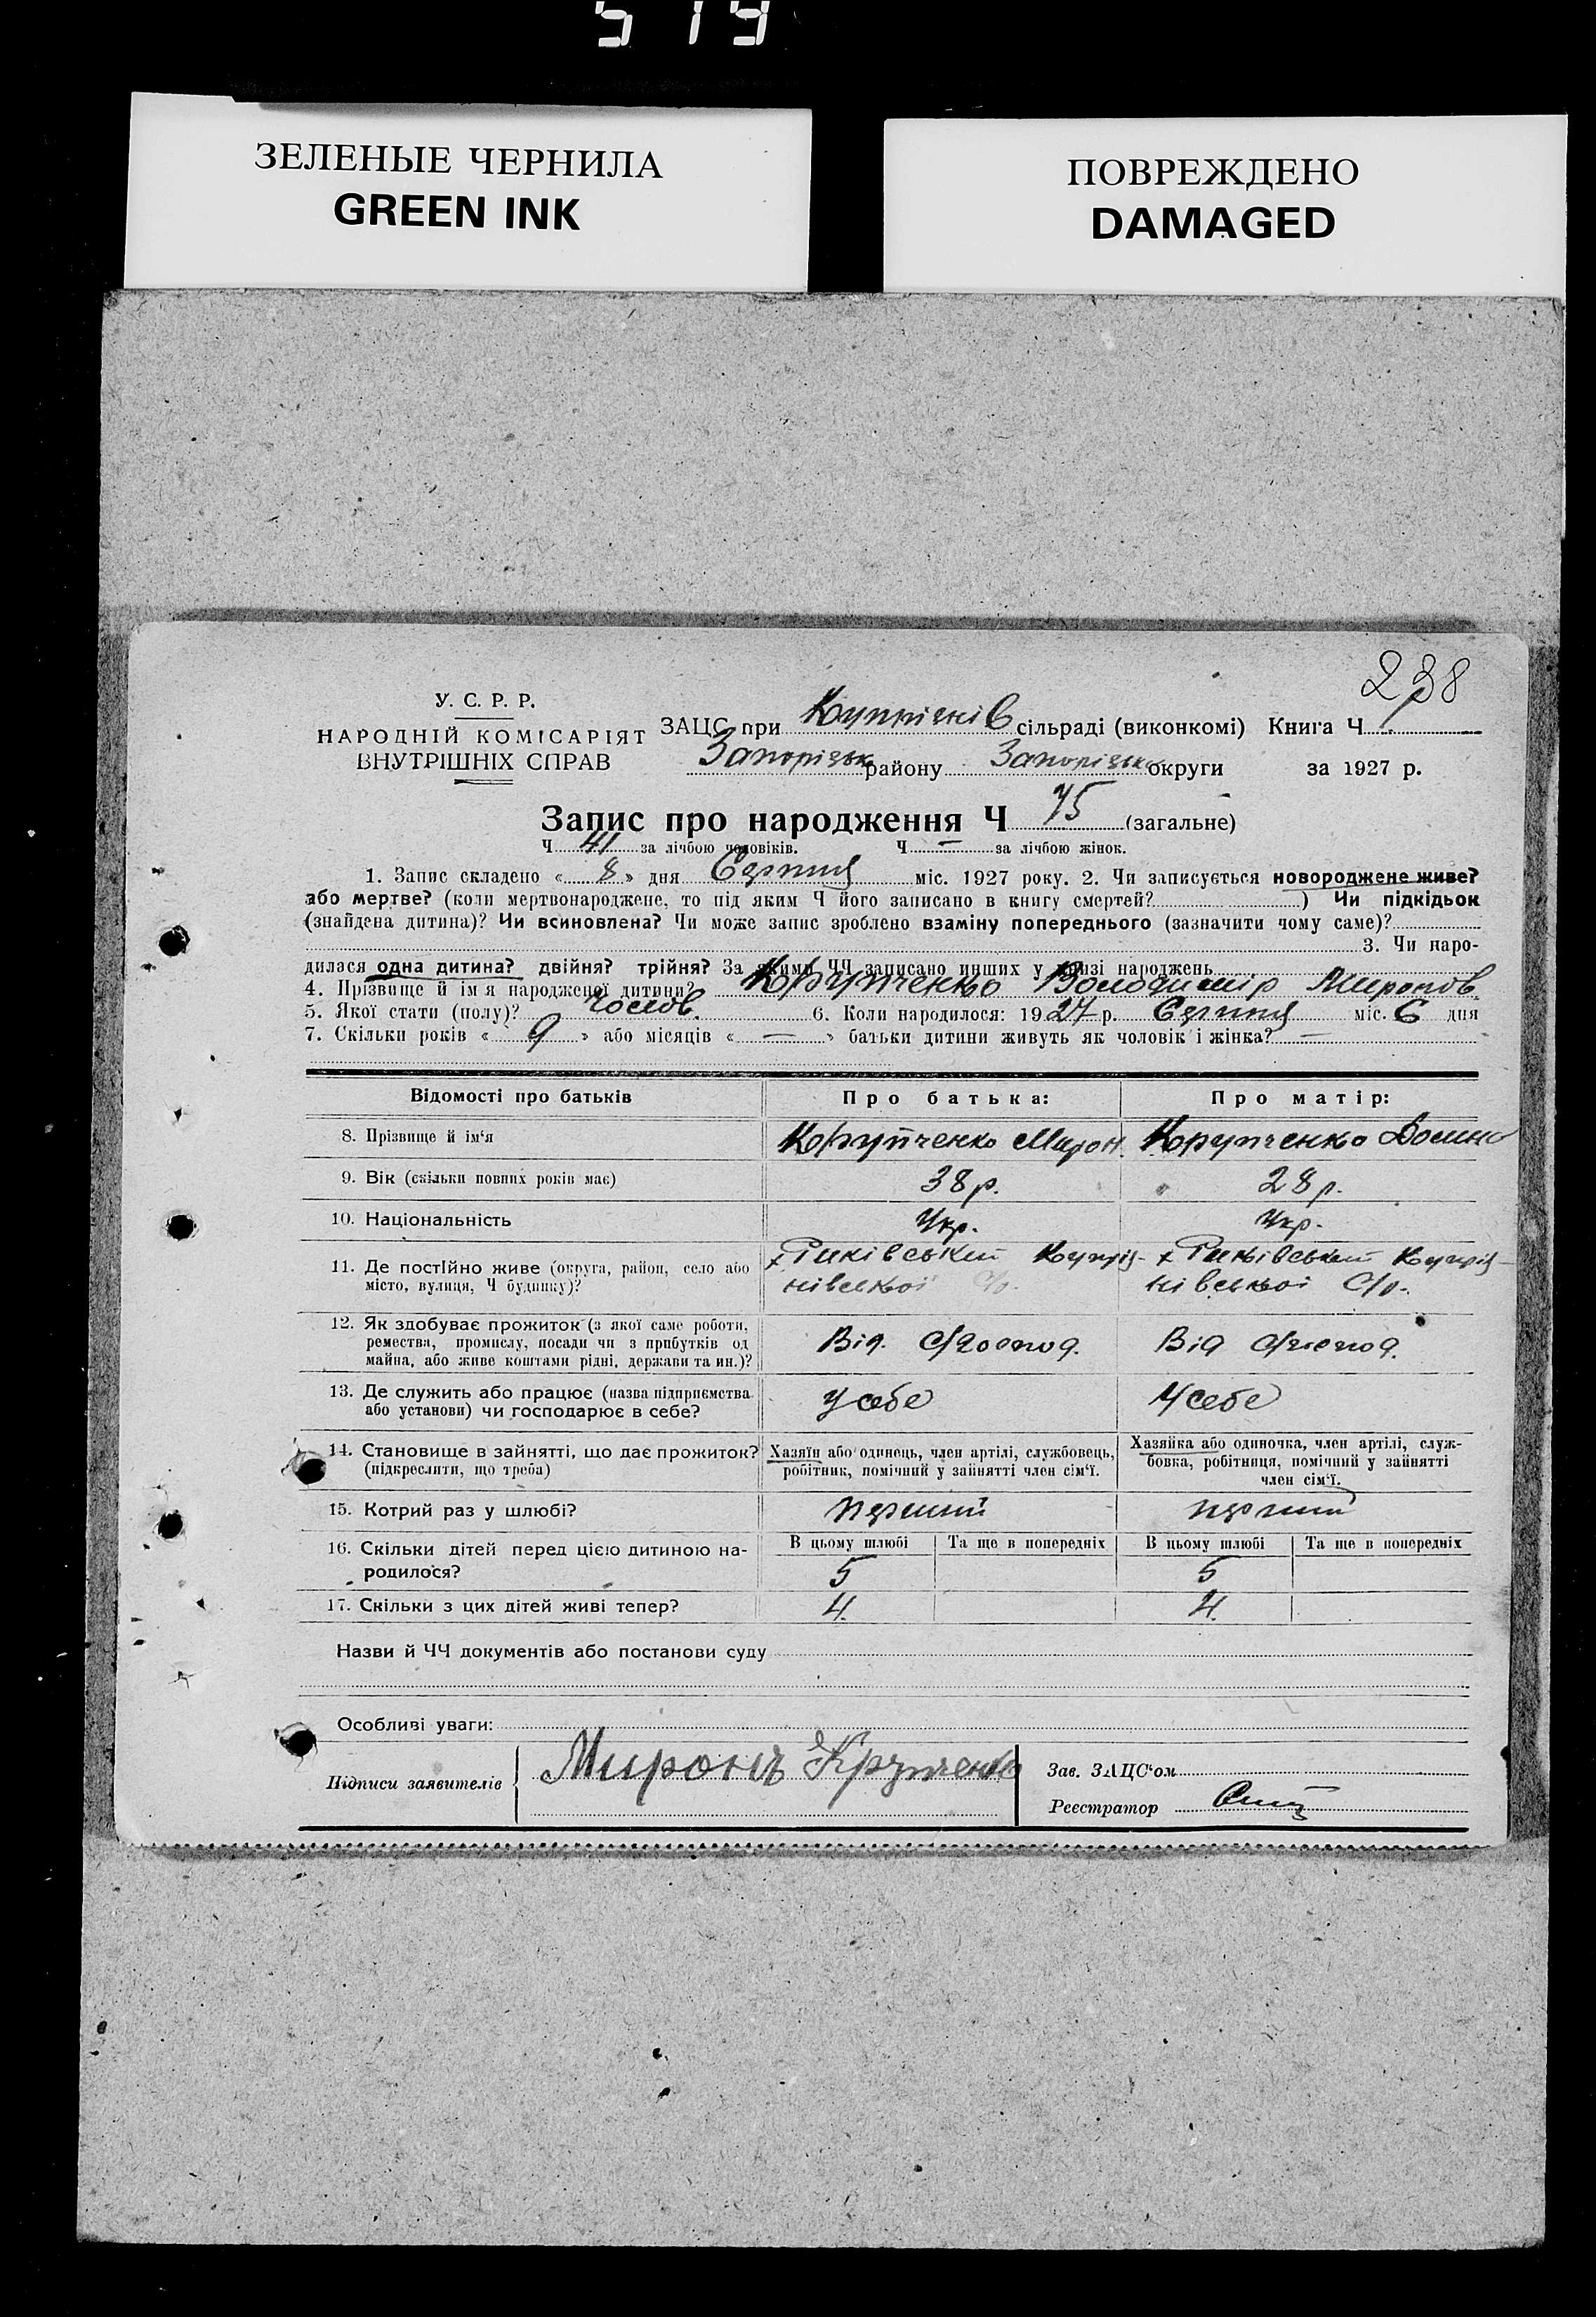 519
ЗЕЛЕНЫЕ ЧЕРНИЛА
GREEN INK
ПОВРЕЖДЕНО
DAMAGED
238
У. С. Р. Р.
НАРОДНІЙ КОМІСАРІЯТ
ВНУТРІШНІХ СПРАВ
ЗАЦС при Купрієнів сільраді (виконкомі) Книга Ч 1
Запорізьк району Запорізьк округи за 1927 р.
Запис про народження Ч 75 (загальне)
Ч 41 за лічбою чоловіків. Ч — за лічбою жінок.
1. Запис складено « 8 » дня Серпня міс. 1927 року. 2. Чи записується новороджене живе?
або мертве? (коли мертвонароджене, то під яким Ч його записано в книгу смертей? ) Чи підкідьок
(знайдена дитина)? Чи всиновлена? Чи може запис зроблено взаміну попереднього (зазначити чому саме)?
3. Чи наро-
дилася одна дитина? двійня? трійня? За якими ЧЧ записано инших у книзі народжень
4. Прізвище й ім'я народженої дитини? Крупченко Володимір Миронов.
5. Якої стати (полу)? Чолов. 6. Коли народилося: 1927 р. Серпня міс. 6 дня
7. Скільки років « 9 » або місяців « — » батьки дитини живуть як чоловік і жінка? —
Відомості про батьків
Про батька:
Про матір:
8. Прізвище й ім'я
Крупченко Мирон.
Крупченко
9. Вік (скільки повних років має)
38 р.
28 р.
10. Національність
Укр.
Укр.
11. Де постійно живе (округа, район, село або
місто, вулиця, Ч будинку)?
нівської С/р.
нівської С/р.
12. Як здобуває прожиток (з якої саме роботи,
ремества, промислу, посади чи з прибутків од
майна, або живе коштами рідні, держави та ин.)?
Від. С/господ.
Від С/господ.
13. Де служить або працює (назва підприємства
або установи) чи господарює в себе?
У себе
У себе
14. Становище в зайнятті, що дає прожиток?
(підкреслити, що треба)
Хазяїн або одинець, член артілі, службовець,
робітник, помічний у зайнятті член сім'ї.
Хазяйка або одиночка, член артілі, служ-
бовка, робітниця, помічний у зайнятті
член сім'ї.
15. Котрий раз у шлюбі?
перший
перший
16. Скільки дітей перед цією дитиною на-
родилося?
В цьому шлюбі
Та ще в попередніх
В цьому шлюбі
Та ще в попередніх
5
5
17. Скільки з цих дітей живі тепер?
4.
4.
Назви й ЧЧ документів або постанови суду
Особливі уваги:
Підписи заявителів
Миронъ Крупченко
Зав. ЗАЦС'ом
Реєстратор